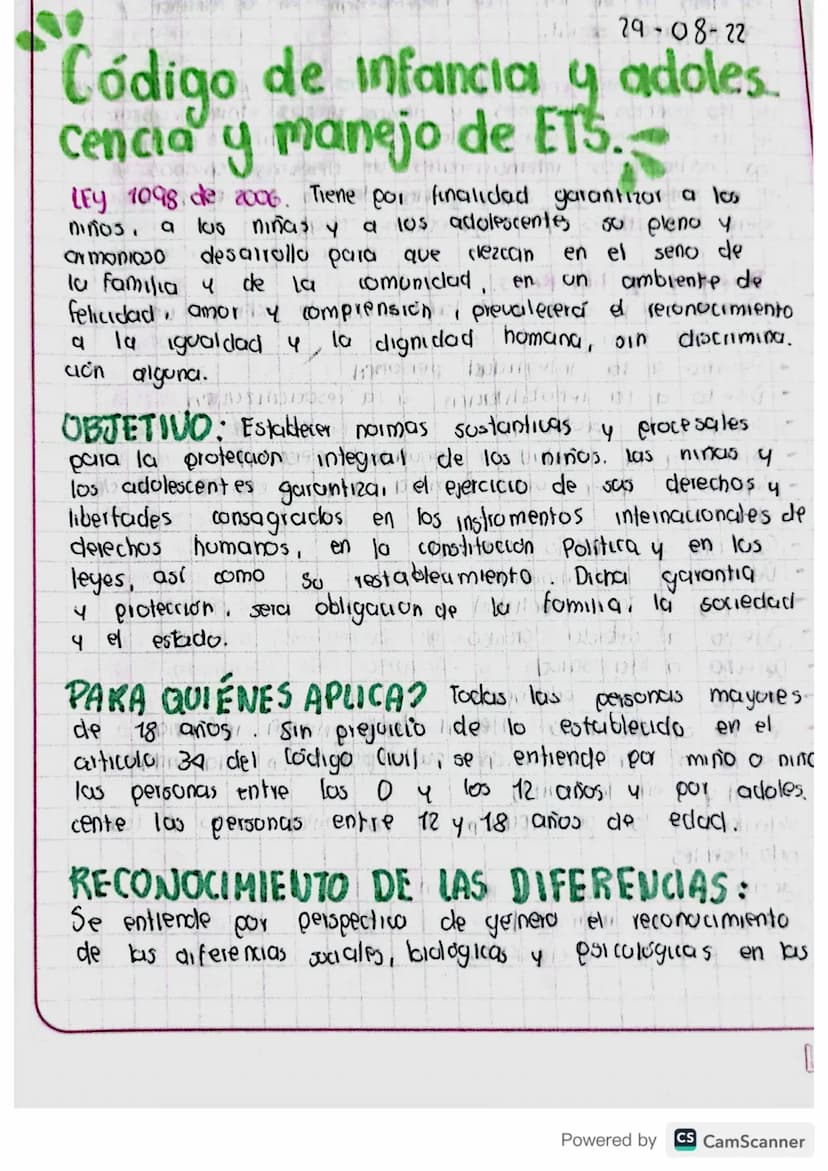 29-08-22
Código de infancia y adoles
cencia y manejo de ETS.
LEY 1098 de 2006. Tiene por finalidad garantizar a los
niños, a las niñas y a los adolescentes su pleno y
armonioso desarrollo para que crezcan en el seno de
la familia y de la comunidad, en un ambiente de
felicidad, amor y comprensión, prevalecerá el reconocimiento
a la igualdad y la dignidad humana, sin discrimina.
ción alguna.
OBJETIVO: Establecer normas sustantivas y procesales
para la protección integral de los niños, las niñas y
los adolescentes garantiza, el ejercicio de sus derechos y
libertades consagrados en los instrumentos internacionales de
derechos humanos, en la constitución Política y en las
leyes, así como su restablecimiento. Dicha garantía
y protección, será obligación de la familia, la sociedad
y el estado.
PARA QUIÉNES APLICA? Todas las personas mayores
de 18 años. Sin prejuicio de lo establecido en el
articulo 34 del Código Civil, se entiende por miño o niña
las personas entre los 0 y los 12 años y por adoles.
cente las personas entre 12 y 18 años de edad.
RECONOCIMIENTO DE LAS DIFERENCIAS:
Se entiende por perspectiva de género el reconocimiento
de las diferencias sociales, biológicas y psicológicas en las
Powered by CS CamScanner